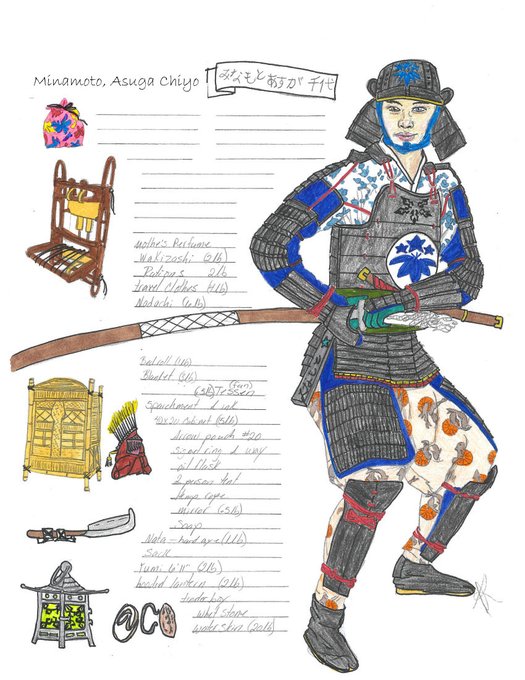 Minamoto, Asuga Chiyo
みなもと あすが 千代
mothe's Perfume
Wakizashi (2lb)
2lb
travel clothes 4lb
Nodachi (6lb)
Bedroll
Blanket (3lb)
(fan)
Tessen
parchment & ink
arrow pouch #20
signal ring & wax
oil flask
2 person tent
hemp rope
mirror
Soap
Nata - hand axe
Sack
Yumi (2lb)
hooded lantern (2lb)
tinder box
whet stone
water skin